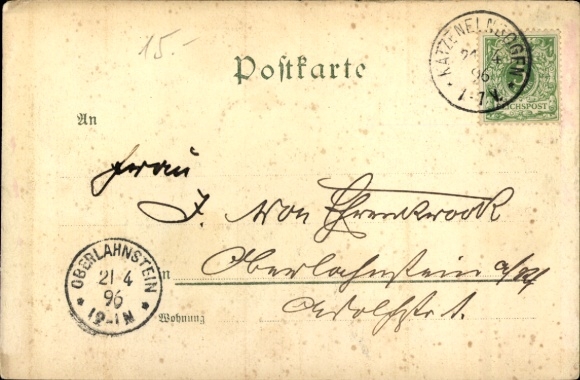 15.-
Postkarte
KATZENELNBOGEN
21 4
96
1-7N.
REICHSPOST
An
Frau
J. von Ehrenkrook
in Oberlahnstein a/Rh
Adolfstr. 1.
Wohnung
OBERLAHNSTEIN
21 4
96
* 12-1N *